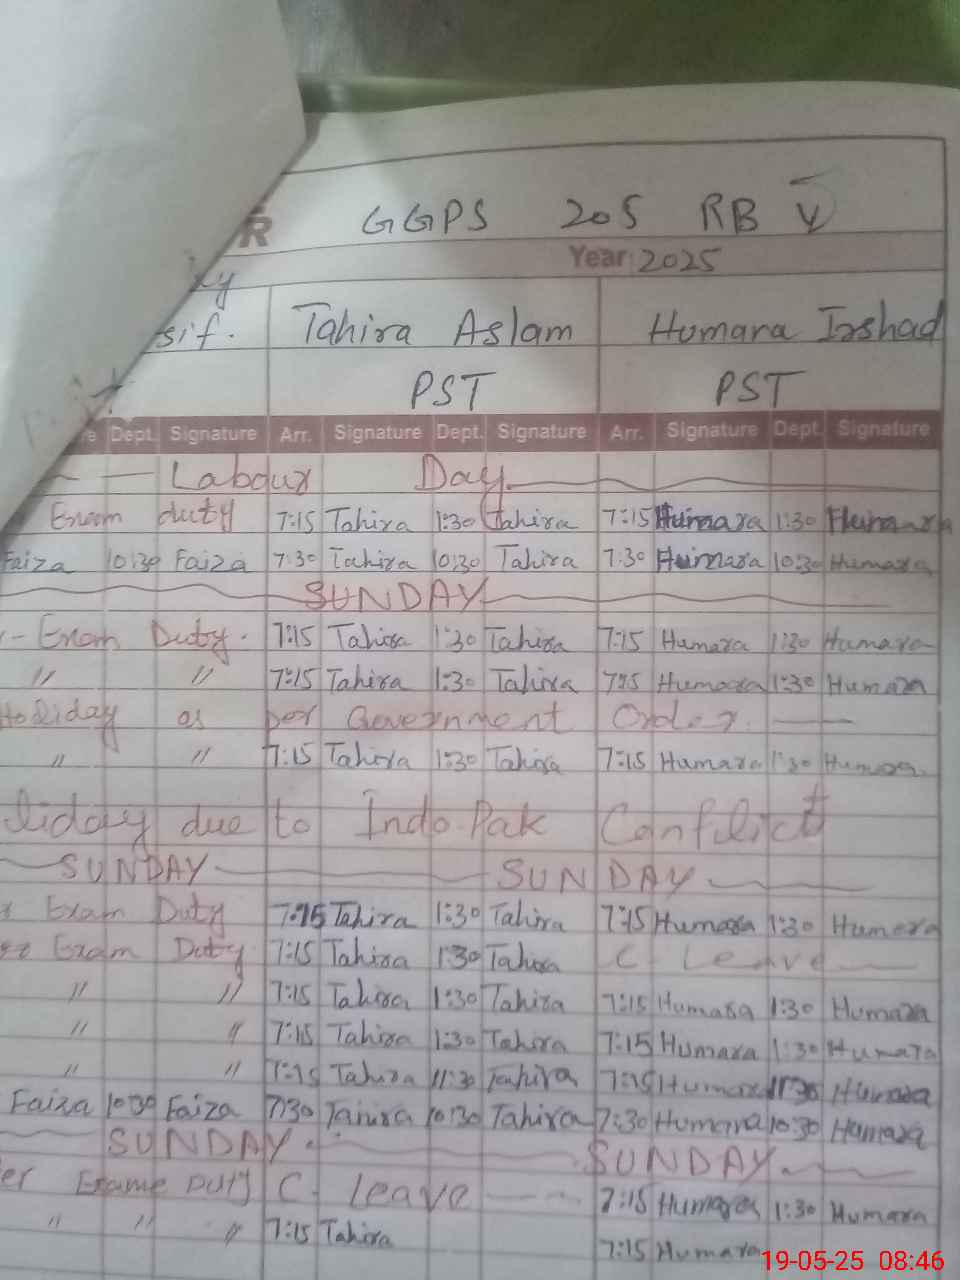 R GGPS 205 RB
Year: 2025
sif. Tahira Aslam Humara Irshad
PST PST
re Dept. Signature Arr. Signature Dept. Signature Arr. Signature Dept. Signature
Labour Day
Exam duty 7:15 Tahira 1:30 Tahira 7:15 Humara 1:30 Humara
Faiza 10:30 Faiza 7:30 Tahira 10:30 Tahira 7:30 Humara 10:30 Humara
SUNDAY
Exam Duty. 7:15 Tahira 1:30 Tahira 7:15 Humara 1:30 Humara
" " 7:15 Tahira 1:30 Tahira 7:15 Humara 1:30 Humara
Holiday as per Government Order.
" " 7:15 Tahira 1:30 Tahira 7:15 Humara 1:30 Humara
liday due to Indo-Pak Conflict
SUNDAY SUNDAY
Exam Duty 7:15 Tahira 1:30 Tahira 7:15 Humara 1:30 Humara
Exam Duty 7:15 Tahira 1:30 Tahira C. Leave
" " 7:15 Tahira 1:30 Tahira 7:15 Humara 1:30 Humara
" " 7:15 Tahira 1:30 Tahira 7:15 Humara 1:30 Humara
" " 7:15 Tahira 11:30 Tahira 7:15 Humara 11:30 Humara
Faiza 10:30 Faiza 7:30 Tahira 10:30 Tahira 7:30 Humara 10:30 Humara
SUNDAY. SUNDAY
er Exame Duty C. leave 7:15 Humara 1:30 Humara
" " " 7:15 Tahira 7:15 Humara
19-05-25 08:46